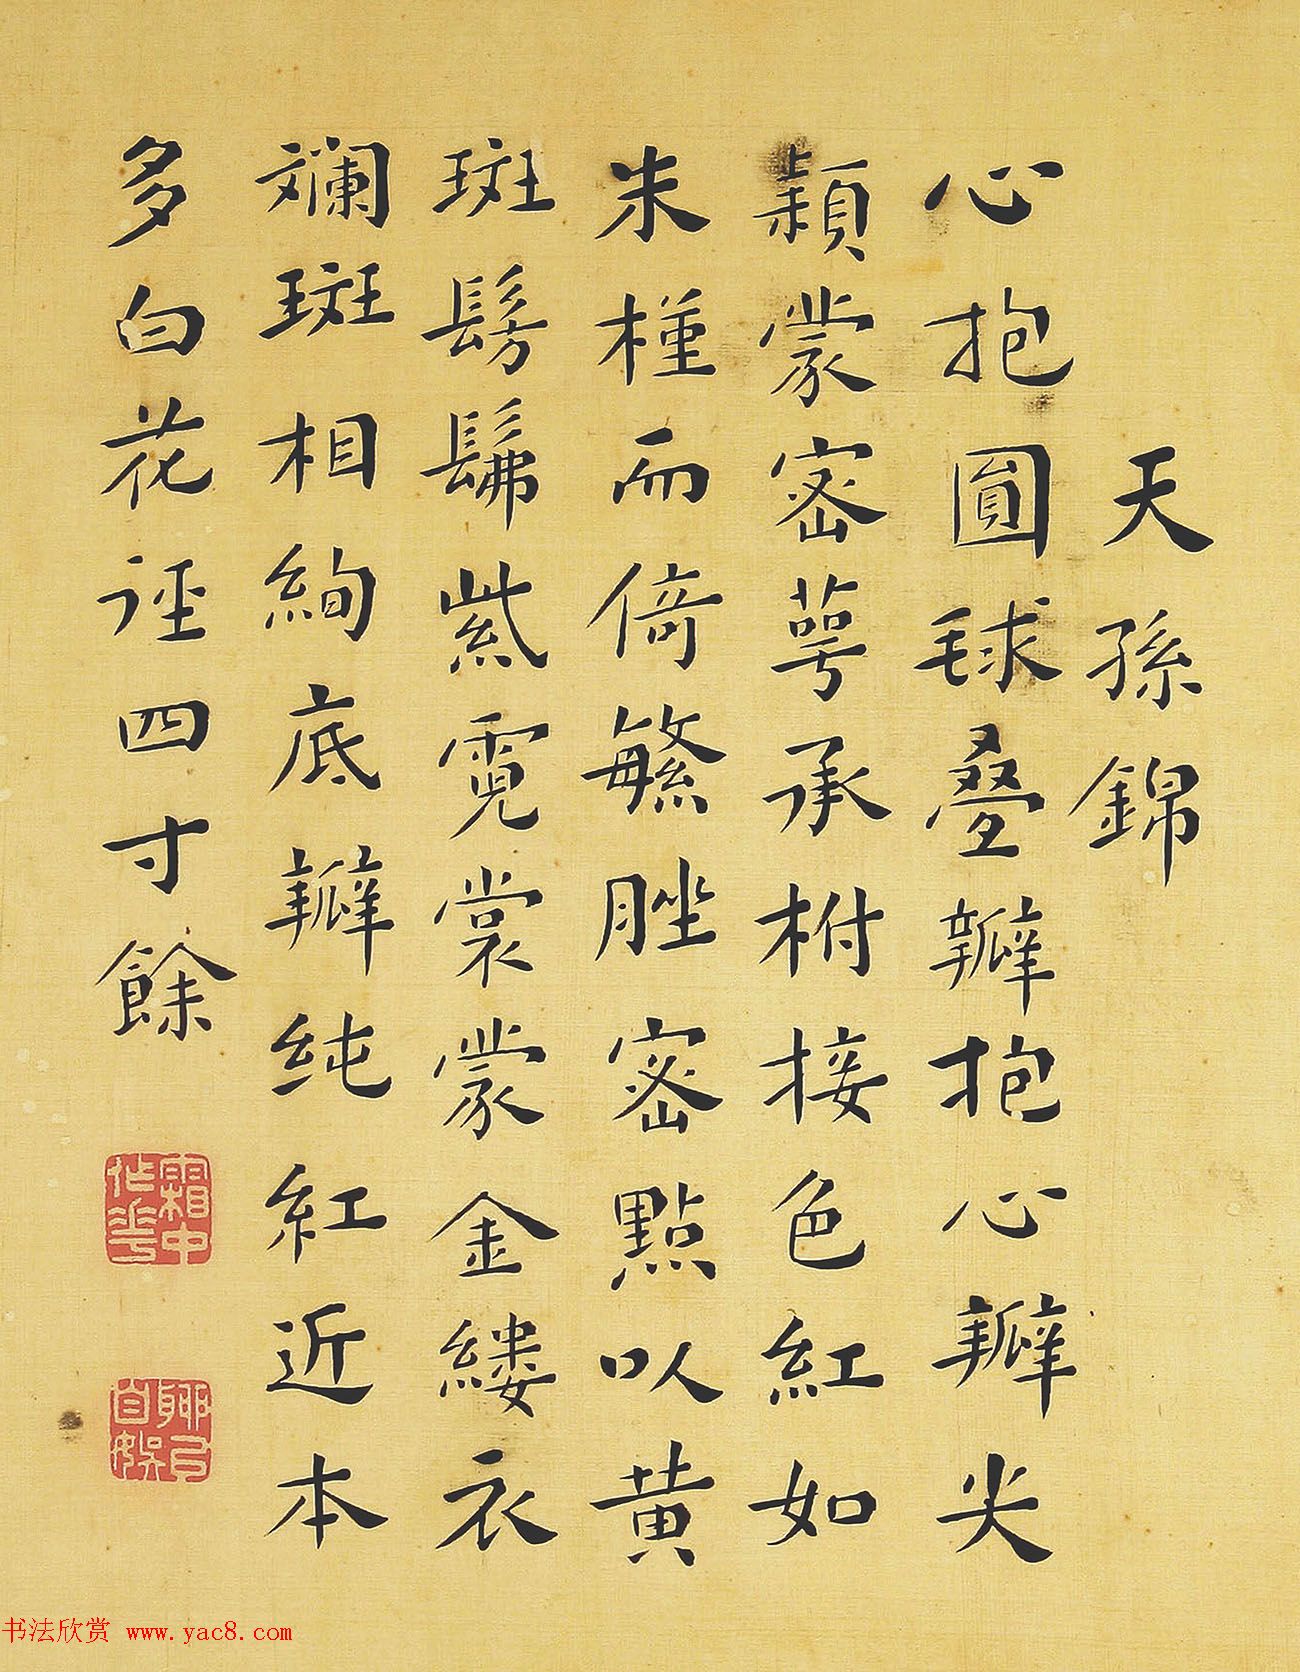 天孫錦
心抱圓毬叠瓣抱心瓣尖
穎蒙密萼承柎接色紅如
朱槿而倚繁脞密點以黄
斑髣髴紫霓裳蒙金縷衣
斓斑相絢底瓣纯紅近本
多白花徑四寸餘
霜中作花
聊乃自娱
书法欣赏 www.yac8.com